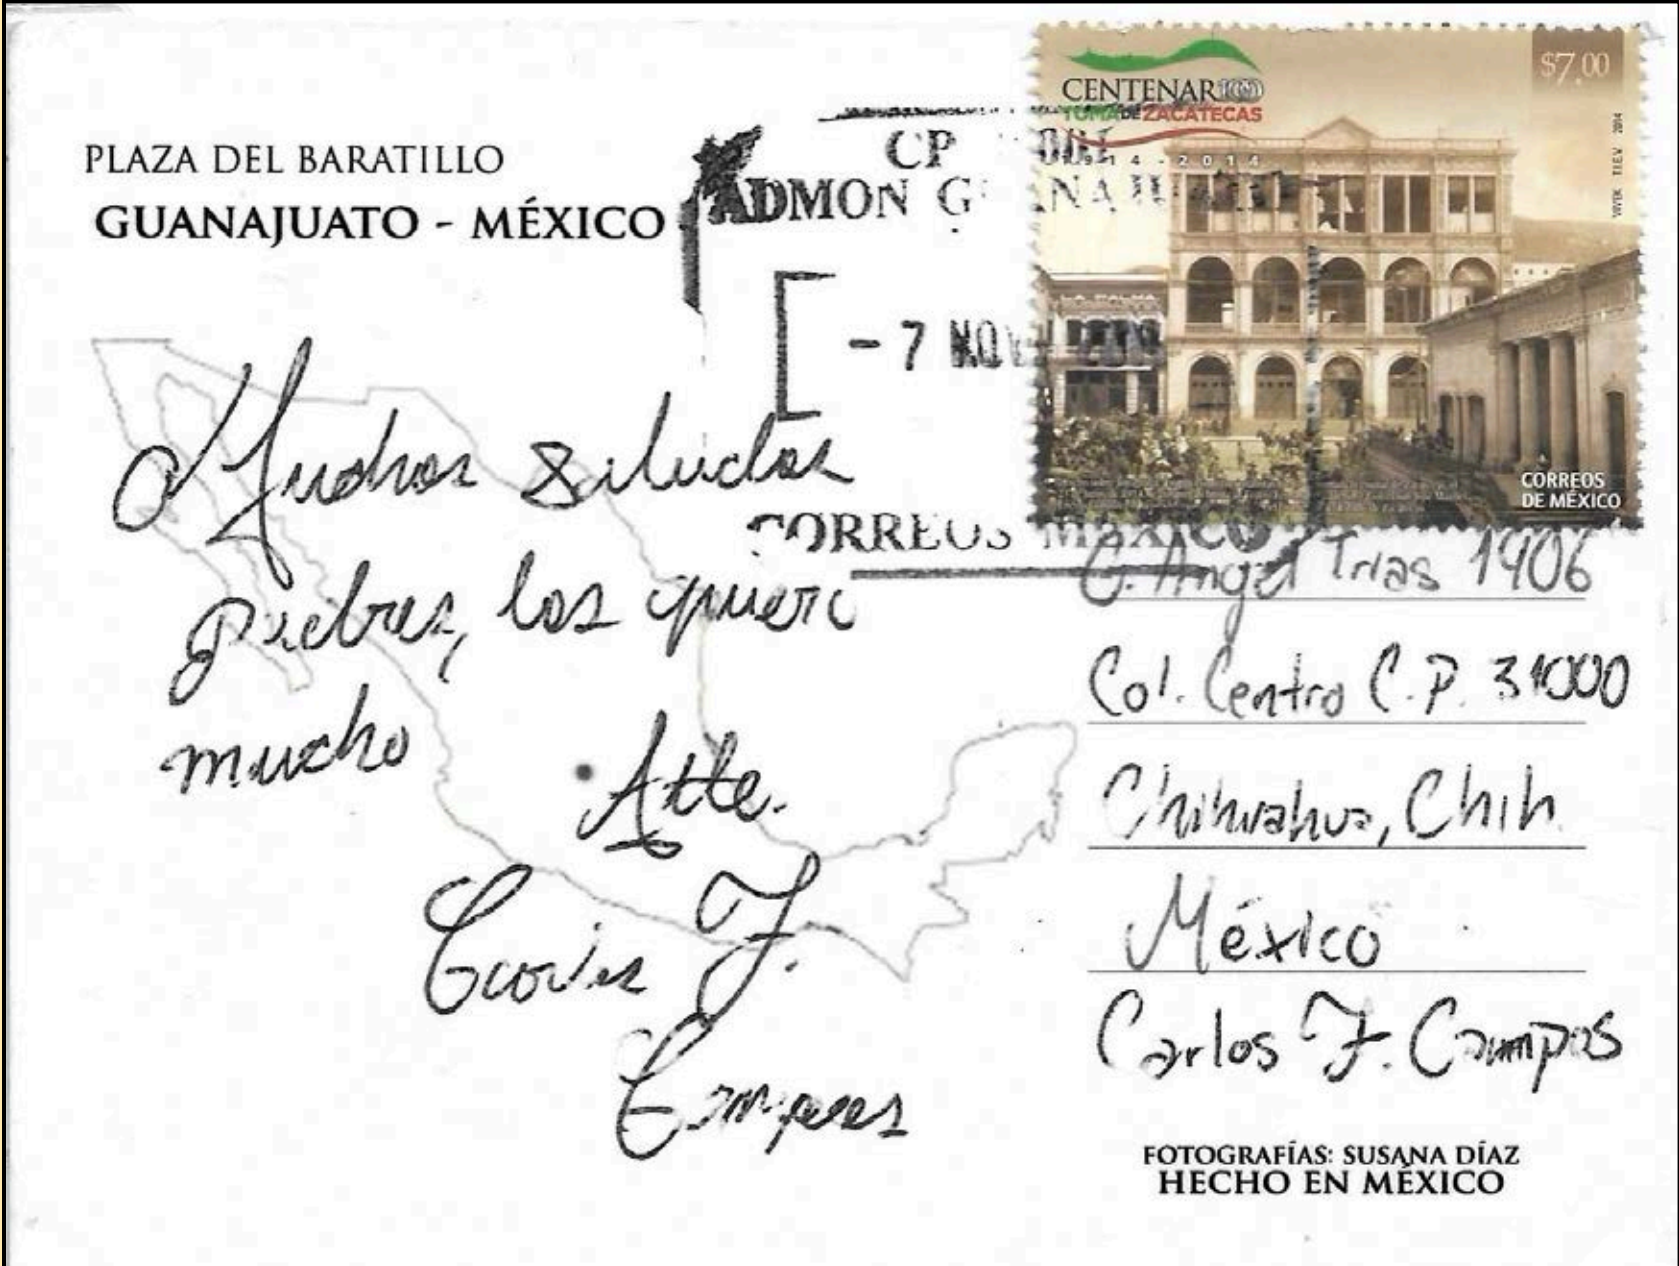 PLAZA DEL BARATILLO
GUANAJUATO - MÉXICO
CENTENARIO
TOMA DE ZACATECAS
1914 - 2014
$7.00
T.I.E.V. 2014
CORREOS
DE MÉXICO
CP
ADMON GUANAJUATO
- 7 NOV
CORREOS MEXICO
Muchos saludos
padres, los quiero
mucho
Atte.
Carlos F.
Campos
C. Angel Trias 1906
Col. Centro C.P. 31000
Chihuahua, Chih.
México
Carlos F. Campos
FOTOGRAFÍAS: SUSANA DÍAZ
HECHO EN MÉXICO